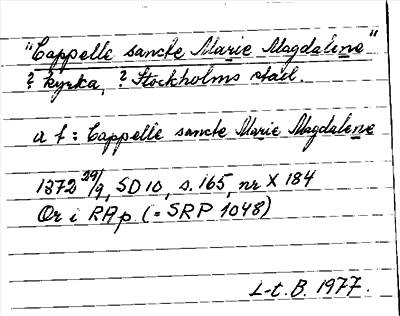 "Cappelle sancte Marie Magdalene"
? kyrka, ? Stockholms stad.
a f: Cappelle sancte Marie Magdalene
1372 29/9, SD 10, s. 165, nr X 184
Or i RAp (= SRP 1048)
L-t. B. 1977.